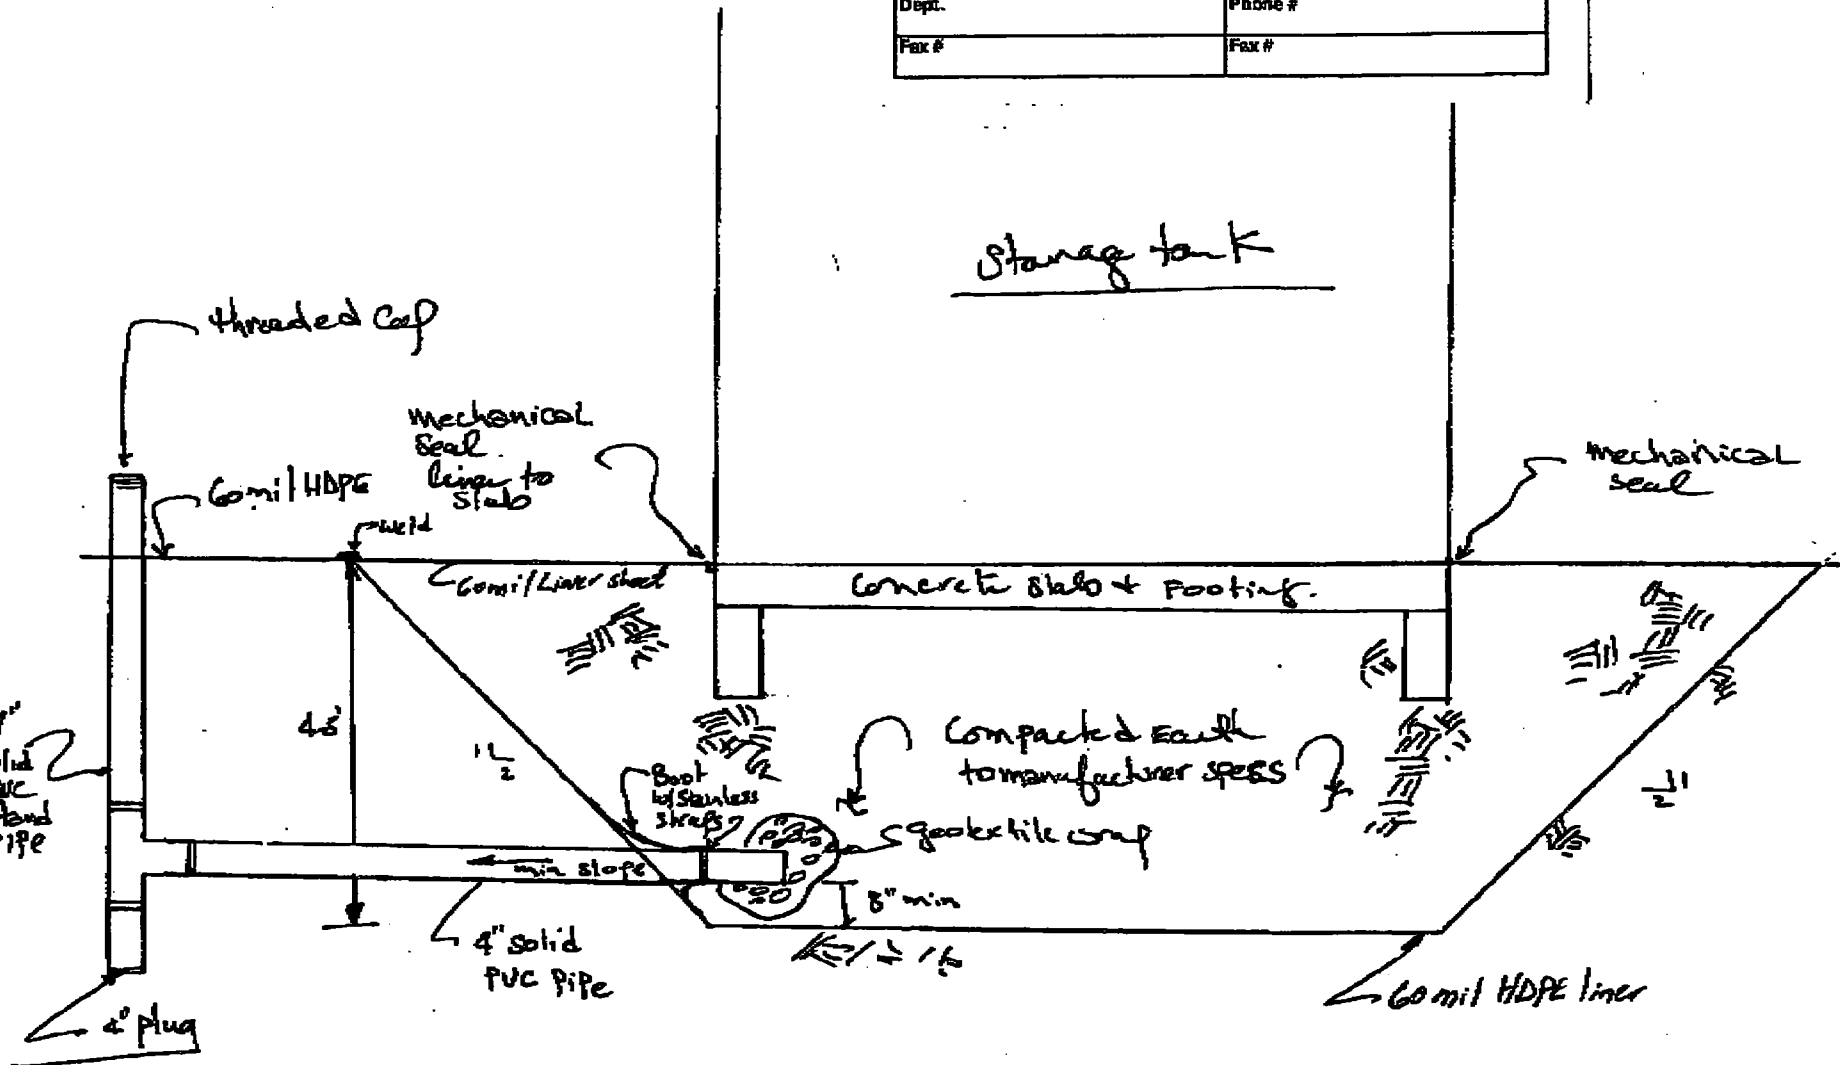 Dept.
Phone #
Fax #
Fax #
Storage tank
threaded cap
mechanical
seal
liner to
slab
mechanical
seal
60 mil HDPE
weld
60 mil Liner sheet
Concrete Slab + Footing.
4"
solid
PVC
stand
pipe
1 1/2
Compacted Earth
to manufacturer specs
Boot
w/stainless
straps
geotextile wrap
min slope
8" min
4" solid
PVC Pipe
60 mil HDPE liner
4" plug